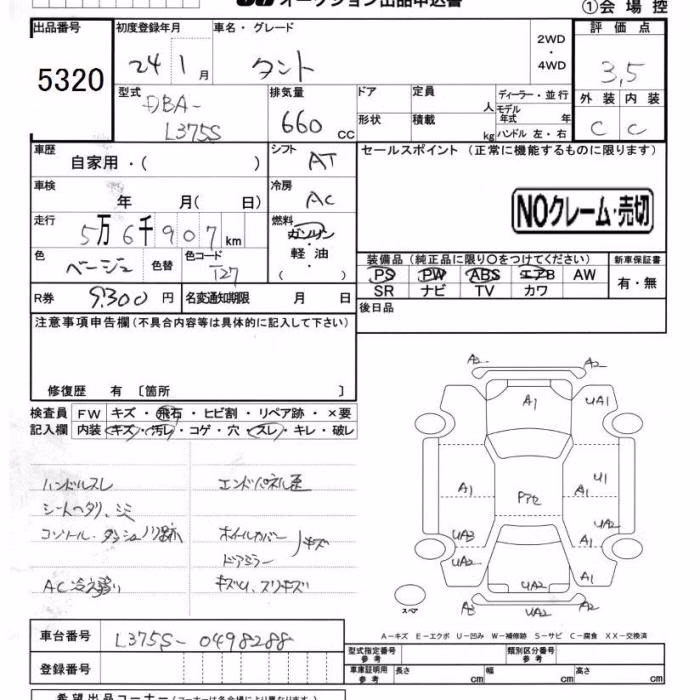 オークション出品申込書
①会場控
出品番号 初度登録年月 車名・グレード 2WD・4WD 評価点
5320 24 1月 タント 3,5
型式 DBA- L375S 排気量 660 CC ドア 定員 人 ディーラー・並行 外装 内装
形状 積載 kg モデル年式 年 ハンドル 左・右 C C
車歴 自家用・( ) シフト AT セールスポイント (正常に機能するものに限ります)
車検 年 月( 日) 冷房 AC
NOクレーム・売切
走行 5万6千907km 燃料 ガソリン・軽油・( )
色 ベージュ 色替 色コード T27 装備品 (純正品に限り○をつけてください) 新車保証書
PS PW ABS エアB AW 有・無
R券 9,300円 名変通知期限 月 日 SR ナビ TV カワ
注意事項申告欄(不具合内容等は具体的に記入して下さい) 後日品
修復歴 有〔箇所 〕
検査員 FW キズ・飛石・ヒビ割・リペア跡・×要
記入欄 内装 キズ・汚レ・コゲ・穴・スレ・キレ・破レ
ハンドルスレ エンドパネル
シートヘタリ、シミ
コンソール・ダッシュ ノリ跡 ホイルカバー キズ
ドアミラー
AC冷え キズU、スリキズ
A2 A2
A1 UA1
A1 U1
Pアセ A1
UA2
UA3 A1
UA2 UA2 A1
スペア A3 UA2 A2
A―キズ E―エクボ U―凹み W―補修跡 S―サビ C―腐食 XX―交換済
車台番号 L375S-0498288 型式指定番号 参考 類別区分番号 参考
登録番号 車庫証明用 参考 長さ cm 幅 cm 高さ cm
希望出品コーナー